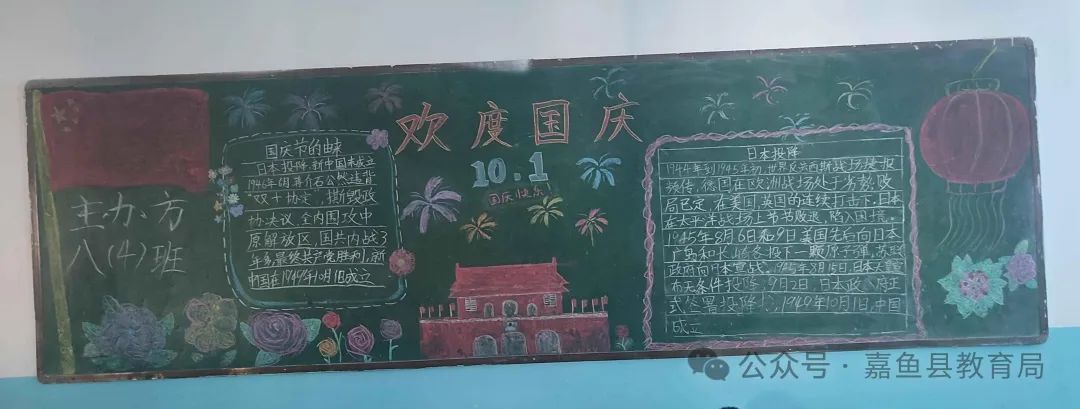 欢度国庆
10.1
国庆快乐!
主办方
八(4)班
国庆节的由来
日本投降,新中国未成立
1946年6月蒋介石公然违背
双十协定,撕毁政
协决议,全内国攻中
原解放区,国共内战3
年多最终共产党胜利,新
中国在1949年10月1日成立
日本投降
1944年到1945年初,世界反法西斯战场捷报
频传,德国在欧洲战场处于劣势,败
局已定,在美国,英国的连续打击下,日本
在太平洋战场上节节败退,陷入困境。
1945年8月6日和9日美国先后向日本
广岛和长崎各投下一颗原子弹,苏联
政府向日本宣战。1945年8月15日日本天皇宣
布无条件投降,9月2日,日本政府正
式签署投降书,1949年10月1日,中国
成立
公众号·嘉鱼县教育局